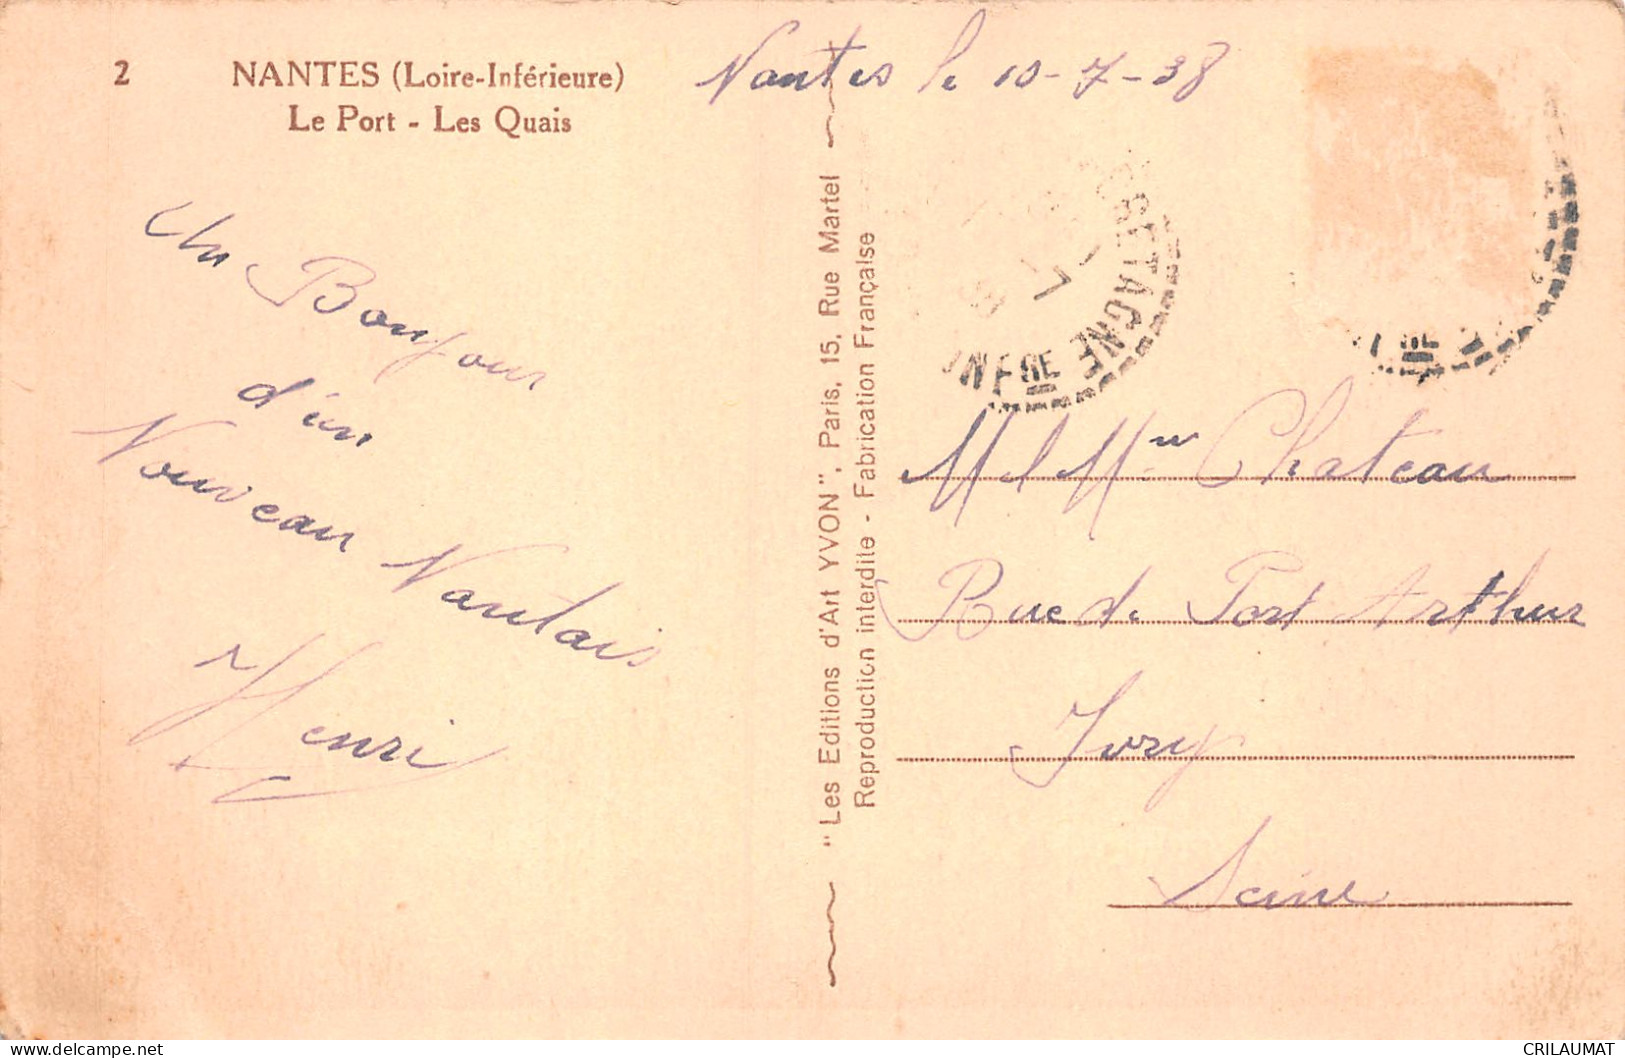 2
NANTES (Loire-Inférieure)
Le Port - Les Quais
Nantes le 10-7-38
Un Bonjour
d'un
Nouveau Nantais
Henri
"Les Editions d'Art YVON", Paris, 15, Rue Martel
Reproduction interdite - Fabrication Française
BRETAGNE
INFRE
M et Mme Chateau
Rue de Port Arthur
Ivry
Seine
CRILAUMAT